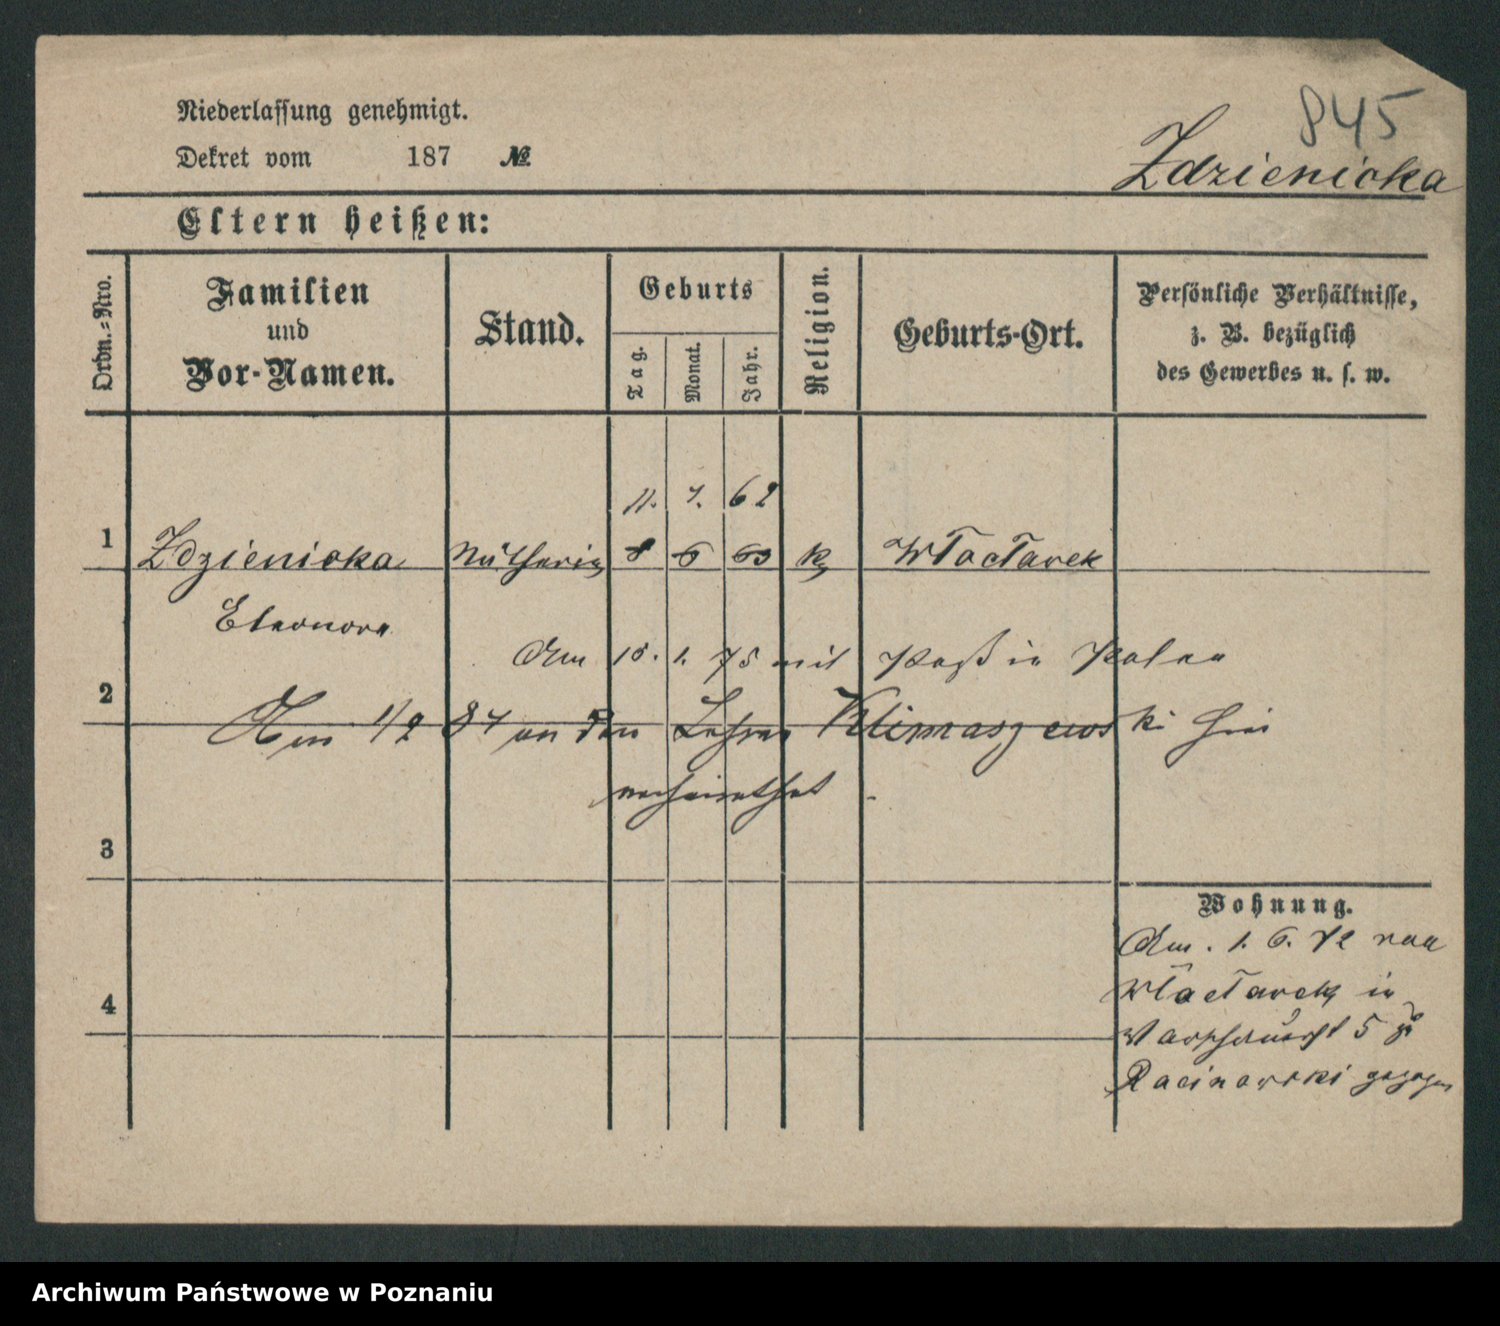 845
Niederlassung genehmigt.
Dekret vom 187 №
Zdzienicka
Eltern heißen:
Ordn.-Nro.
Familien
und
Vor-Namen.
Stand.
Geburts
Tag. Monat. Jahr.
Religion.
Geburts-Ort.
Persönliche Verhältnisse,
z. B. bezüglich
des Gewerbes u. s. w.
11. 7. 62
1 Zdzienicka Nätherin 8 6 63 k Włocławek
Eleonore
Am 15. 1. 75 mit Paß in Polen
2
Am 1/2 87 an den Lehrer Klimaszewski hier
verheirathet
3
Wohnung.
Am 1. 6. 72 von
4
Włocławek in
5
Racinowski gezogen
Archiwum Państwowe w Poznaniu